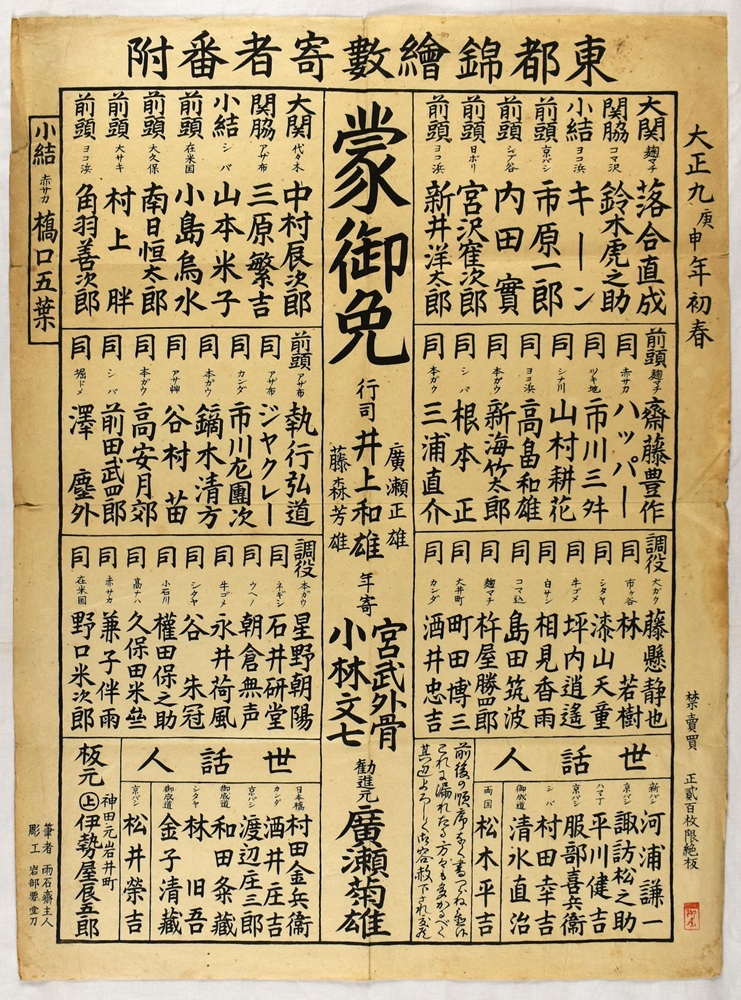 東都錦繪數寄者番附
大正九庚申年初春
大関 麹マチ 落合直成
関脇 コマ沢 鈴木虎之助
小結 ヨコ浜 キーン
前頭 京バシ 市原一郎
前頭 シブ谷 内田實
前頭 日ボリ 宮沢寉次郎
前頭 ヨコ浜 新井洋太郎
前頭 麹マチ 齋藤豊作
同 赤サカ ハッパー
同 ツキ地 市川三舛
同 シナ川 山村耕花
同 ヨコ浜 高畠和雄
同 本ガウ 新海竹太郎
同 シバ 根本正
同 本ガウ 三浦直介
調役 大ガク 藤懸静也
同 市ヶ谷 林若樹
同 シタヤ 漆山天童
同 牛ゴメ 坪内逍遙
同 白サン 相見香雨
同 コマ込 島田筑波
同 麹マチ 杵屋勝四郎
同 大井町 町田博三
同 カンダ 酒井忠吉
世話人
新バシ 河浦謙一
京バシ 諏訪松之助
ハマ丁 平川健吉
京バシ 服部喜兵衞
シバ 村田幸吉
御成道 清水直治
両国 松木平吉
蒙御免
行司 井上和雄
廣瀬正雄
藤森芳雄
年寄
宮武外骨
小林文七
勧進元 廣瀬菊雄
大関 代々木 中村辰次郎
関脇 アザ布 三原繁吉
小結 シバ 山本米子
前頭 在米国 小島烏水
前頭 大久保 南日恒太郎
前頭 大サキ 村上胖
前頭 ヨコ浜 角羽善次郎
小結 赤サカ 橋口五葉
前頭 アザ布 執行弘道
同 アザ布 ジヤクレー
同 カンダ 市川左團次
同 本ガウ 鏑木清方
同 アサ艸 谷村苗
同 本ガウ 高安月郊
同 シバ 前田武四郎
同 堀ドメ 澤塵外
調役 本ガウ 星野朝陽
同 ネギシ 石井研堂
同 ウヘノ 朝倉無声
同 牛ゴメ 永井荷風
同 シタヤ 谷朱冠
同 小石川 權田保之助
同 高ナハ 久保田米斎
同 赤サカ 兼子伴雨
同 在米国 野口米次郎
世話人
日本橋 村田金兵衞
カンダ 酒井庄吉
京バシ 渡辺庄三郎
御成道 和田粂藏
シタヤ 林旧吾
御成道 金子清藏
京バシ 松井榮吉
板元 神田元岩井町 上 伊勢屋辰五郎
禁賣買 正貳百枚限絶板
筆者 雨石齋主人
彫工 岩部要堂刀